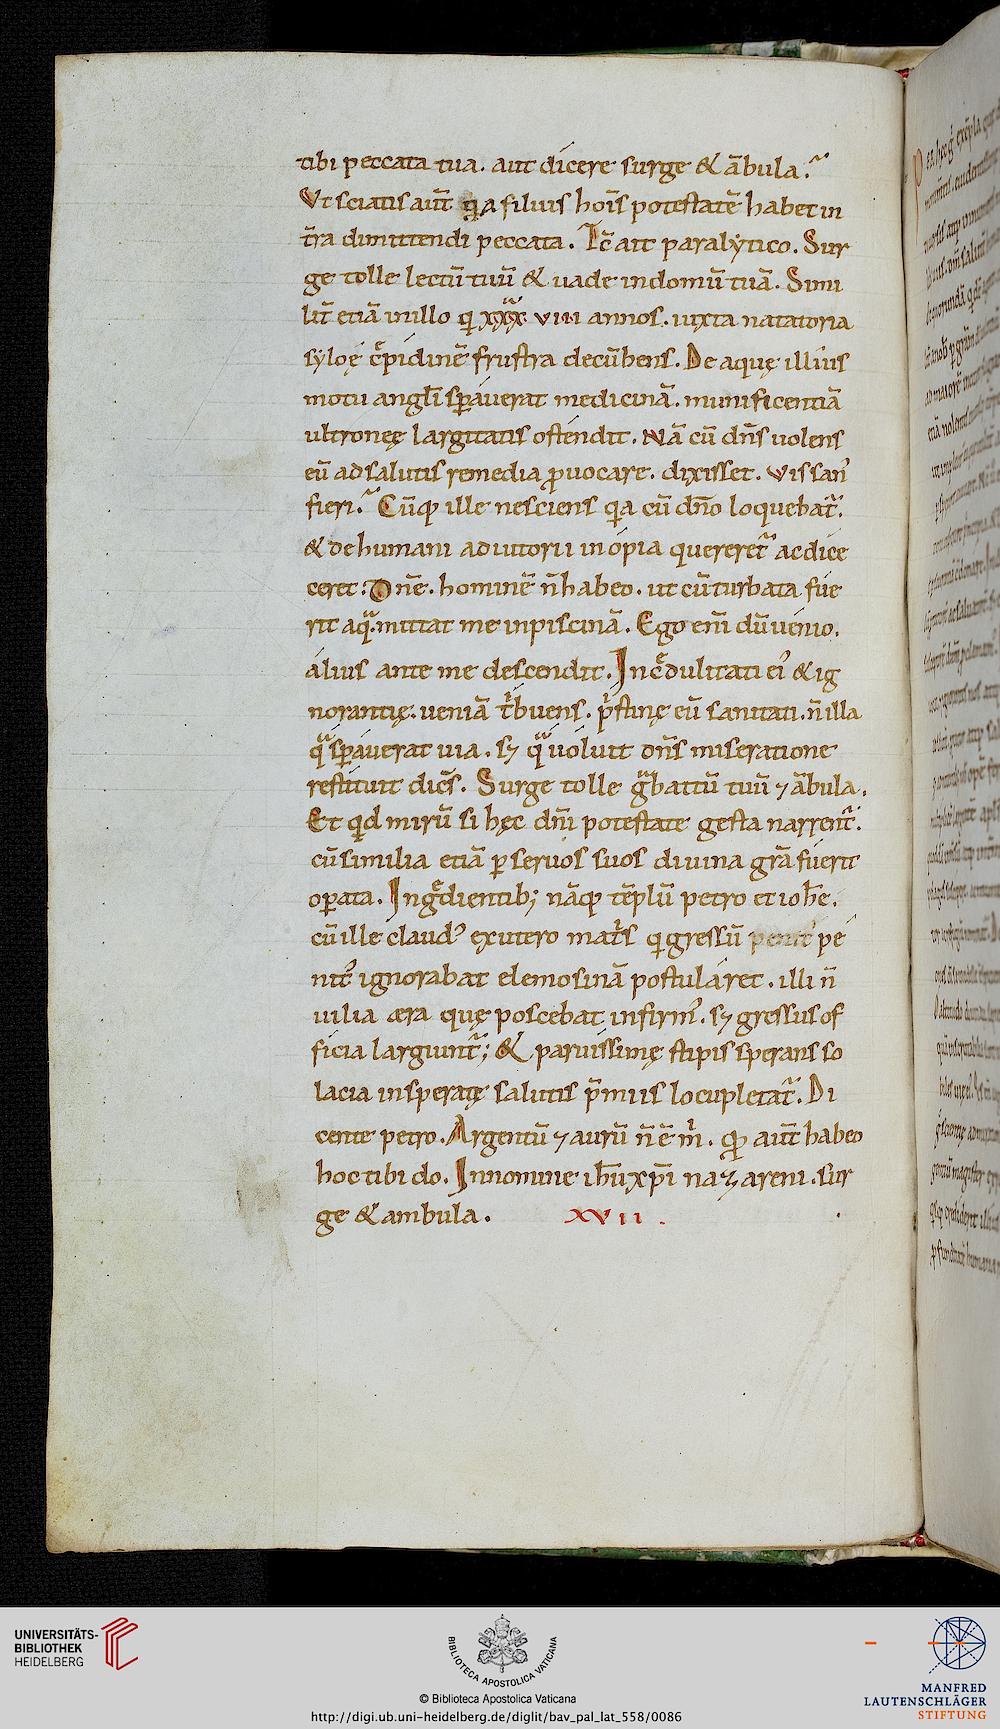 tibi peccata tua. aut dicere surge & ābula.
Vt sciatis aut̄ qa filius hoīs potestatē habet in
t̄ra dimittendi peccata. Tc̄ ait paralẏtico. Sur
ge tolle lectū tuū & uade in domū tuā. Simi
lit̄ etiā in illo q xxx viii annos. iuxta natatoria
sẏloę c̄pidinē frustra decūbens. De aquę illius
motu angl̄i sꝑauerat medicinā. munificentiā
ultronęę largitatis ostendit. Nā cū dn̄s uolens
eū ad salutis remedia ꝓuocare. dixisset. Vis san᾽
fieri. Cūq ille nesciens qa cū dn̄o loquebat᾽.
& de humani adiutorii inopia quereret᾽ ac dice
ceret. Dn̄e. hominē n̄ habeo. ut cū turbata fue
rit aqͣ. mittat me in piscinā. Ego eni̅ dū uenio.
alius ante me descendit. Incͤdulitati ei᾽ & ig
norantię. ueniā tⁱbuens. pⁱstinę eū sanitati. n̄ illa
qͣ sꝑauerat uia. sꝫ qͣ uoluit dn̄s miseratione
restituit dicēs. Surge tolle gͣbattū tuū ⁊ ābula.
Et qd mirū si hęc dn̄i potestate gesta narrent᾽.
cū similia etiā ꝑ seruos suos diuina grā fuerit
oꝑata. Ingͤdientib; nāq tēplū petro et ioh̄e.
cū ille claud᾽ ex utero matⁱs q gressū pe
nit᾽ ignorabat elemosinā postularet. illi n̄
uilia æra quę poscebat infirm᾽. sꝫ gressus of
ficia largiunt᾽; & paruissimę stipis sperans so
lacia insperatę salutis p̄miis locupletat᾽. Di
cente petro. Argentū ⁊ aurū n̄ ē mⁱ. qͦ aut̄ habeo
hoc tibi do. In nomine ih̄u xp̄i nazareni. sur
ge & ambula. XVII.
UNIVERSITÄTS-
BIBLIOTHEK
HEIDELBERG
BIBLIOTECA APOSTOLICA VATICANA
© Biblioteca Apostolica Vaticana
http://digi.ub.uni-heidelberg.de/diglit/bav_pal_lat_558/0086
MANFRED
LAUTENSCHLÄGER
STIFTUNG